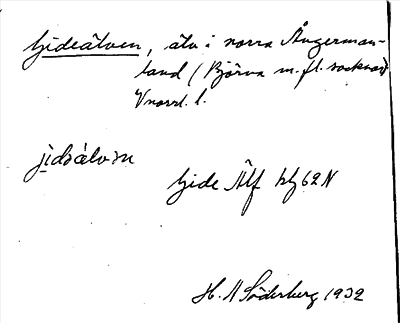 Gideälven, älv i norra Ångerman-
land (Björna m. fl. socknar)
Vnorrl. l.
jìdeälvən
Gide Älf kbl 62 N
H. Söderberg 1932